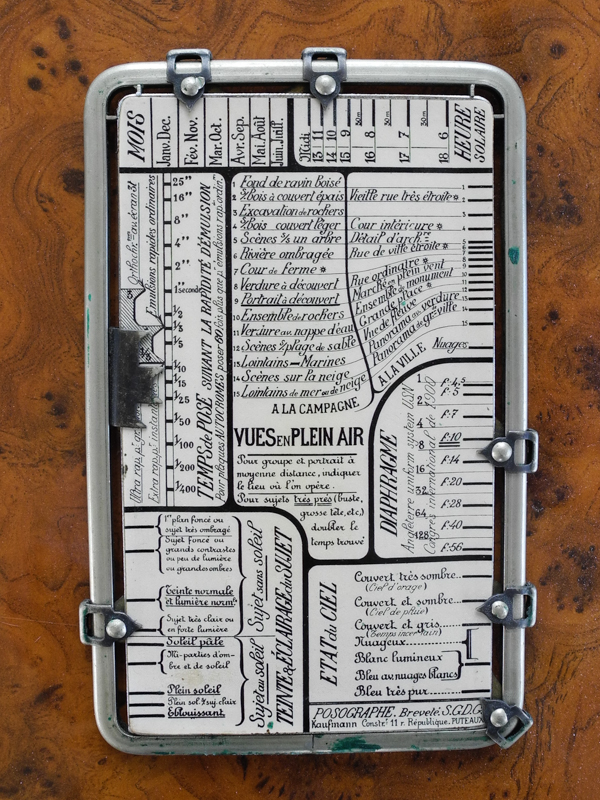 MOIS
Janv. Déc.
Fév. Nov.
Mar. Oct.
Avr. Sep.
Mai. Août
Juin. Juill.
Midi
13 11
14 10
15 9
30m
16 8
30m
17 7
30m
18 6
HEURE
SOLAIRE
Emulsions rapides ordinaires
25"
16"
8"
4"
2"
1 seconde
1/2
1/5
1/10
1/15
1/25
1/50
1/100
1/200
1/400
TEMPS de POSE SUIVANT LA RAPIDITÉ D'ÉMULSION
1 Fond de ravin boisé
2 Bois à couvert épais
3 Excavation de rochers
4 Bois couvert léger
5 Scènes s/s un arbre
6 Rivière ombragée
7 Cour de Ferme *
8 Verdure à découvert
9 Portrait à découvert
10 Ensemble de rochers
11 Verdure av. nappe d'eau
12 Scènes s/plage de sable
13 Lointains – Marines
14 Scènes sur la neige
15 Lointains de mer ou de neige
A LA CAMPAGNE
Vieille rue très étroite *
Cour intérieure *
Détail d'archre
Rue de ville étroite *
Rue ordinaire *
Marché en plein vent
Ensemble de monument
Grande Place *
Vue de fleuve
Panorama av. verdure
Panorama de gde ville
Nuages
A LA VILLE
VUES EN PLEIN AIR
Pour groupe et portrait à
moyenne distance, indiquer
le lieu où l'on opère.
Pour sujets très près (buste,
grosse tête, etc.)
doubler le
temps trouvé
DIAPHRAGME
Angleterre uniform system USN
Congrès international de 1900
f:4,5
f:5
f:7
f:10
f:14
f:20
f:28
f:40
f:56
2
4
8
16
32
64
128
1er plan foncé ou
sujet très ombragé
Sujet foncé ou
grands contrastes
ou peu de lumière
ou grandes ombres
Teinte normale
et lumière norme
Sujet très clair ou
en forte lumière
Soleil pâle
Mi-parties d'om-
bre et de soleil
Plein soleil
Plein sol. s/suj. clair
Eblouissant
Sujet sans soleil
Sujet au soleil
TEINTE & ÉCLAIRAGE du SUJET
ÉTAT du CIEL
Couvert très sombre
(Ciel d'orage)
Couvert et sombre
(Ciel de pluie)
Couvert et gris
(Temps incertain)
Nuageux
Blanc lumineux
Bleu av. nuages blancs
Bleu très pur
POSOGRAPHE. Breveté. S.G.D.G.
Kaufmann Constr. 11 r. République, PUTEAUX